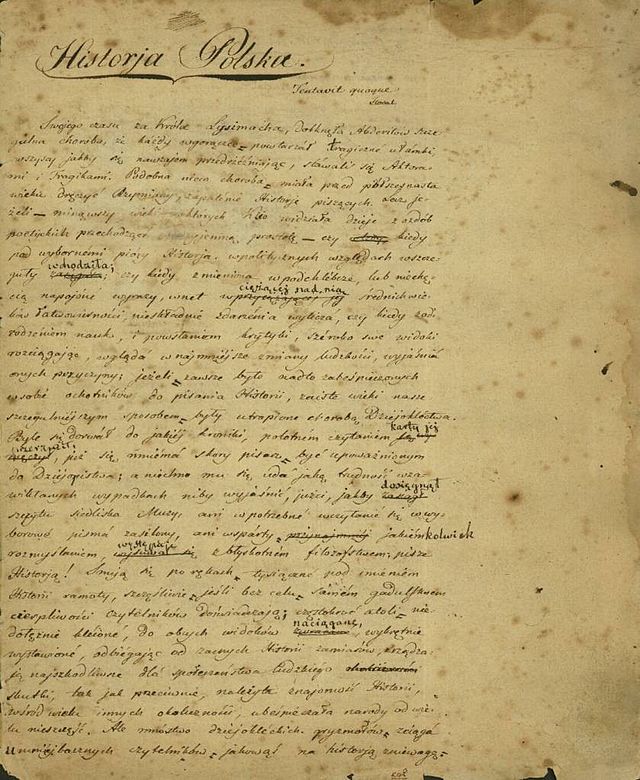 Historja Polska.
Tentavit quoque
Swojego czasu za Króla Lysimacha, dotknęła Abderitów szcze
gólna choroba, że każdy wygorączce powtarzał tragiczne ułamki
wszyscy jakby się nawzajem przedrzeźniając, stawali się Aktora
mi i Tragikami. Podobna nieco choroba miała przed półszesnasta
wieku dręczyć Rzymiany, zapalenie Historje piszących. Lecz je
żeli minąwszy wieki których Klio widziała dzieje z ozdób
poetyckich przechodzące prostotę – czy kiedy
pod wybornemi pióry Historja. wpolitycznych względach wszcze
guły wchodziła; czy kiedy zmieniona wpodchlebcze, lub niechę
cią napojone wyrazy, wnet ciężącéj nad nią średnichwie
ków łatwowierności, nieskładnie zdarzenia wylicza, czy kiedy zod
rodzeniem nauk, i powstaniem krytyki, szeroko swe widoki
rozciągając, wgląda wnajmniejsze zmiany ludzkości, wyjaśnia
onych przyczyny; jeżeli zawsze było nadto zabespieczonych
wsobie ochotników do pisania Historii, zaiste wieki nasze
szczególniejszym sposobem były utrapione chorobą Dziejoklectwa.
Byle się dorwał do jakiéj kroniki, polotnem czytaniem karty jéj
przerzucił, już się mniema skory pisarz być upoważnionym
do Dziejopistwa; a niechno mu się uda jaką trudność wza
wikłanych wypadkach niby wyjaśnić, jużci, jakby dosięgnął
szczytu siedliska Muzy, ani wpotrzebne wczytanie się wwy
borowe pisma zasilony, ani wsparty przynajmniéj jakiémkolwiek
rozmyślaniem, występuje z błyskotnem filozofstwem; pisze
Historją! Snują się po rękach tysiączne pod imieniem
Historii ramoty, szczęśliwie jeśli bez celu. Samém gadulstwem
cierpliwości czytelników doświadczają; częstokroć atoli nie
dołężnie kleione, do obcych widoków naciągane, wykrętnie
wystawione, odbiegając od zacnych Historii zamiarów, zrządza
ją najszkodliwsze dla społeczeństwa ludzkiego
skutki, tak jak przeciwnie, należyta znajomość Historii,
wśród wielu innych okoliczności, ubespieczała narody od wie
lu nieszczęść. Ale mnóstwo dziejokleckich gryzmołów, ściąga
umniéj bacznych czytelników jakowąś na historją zniewagę